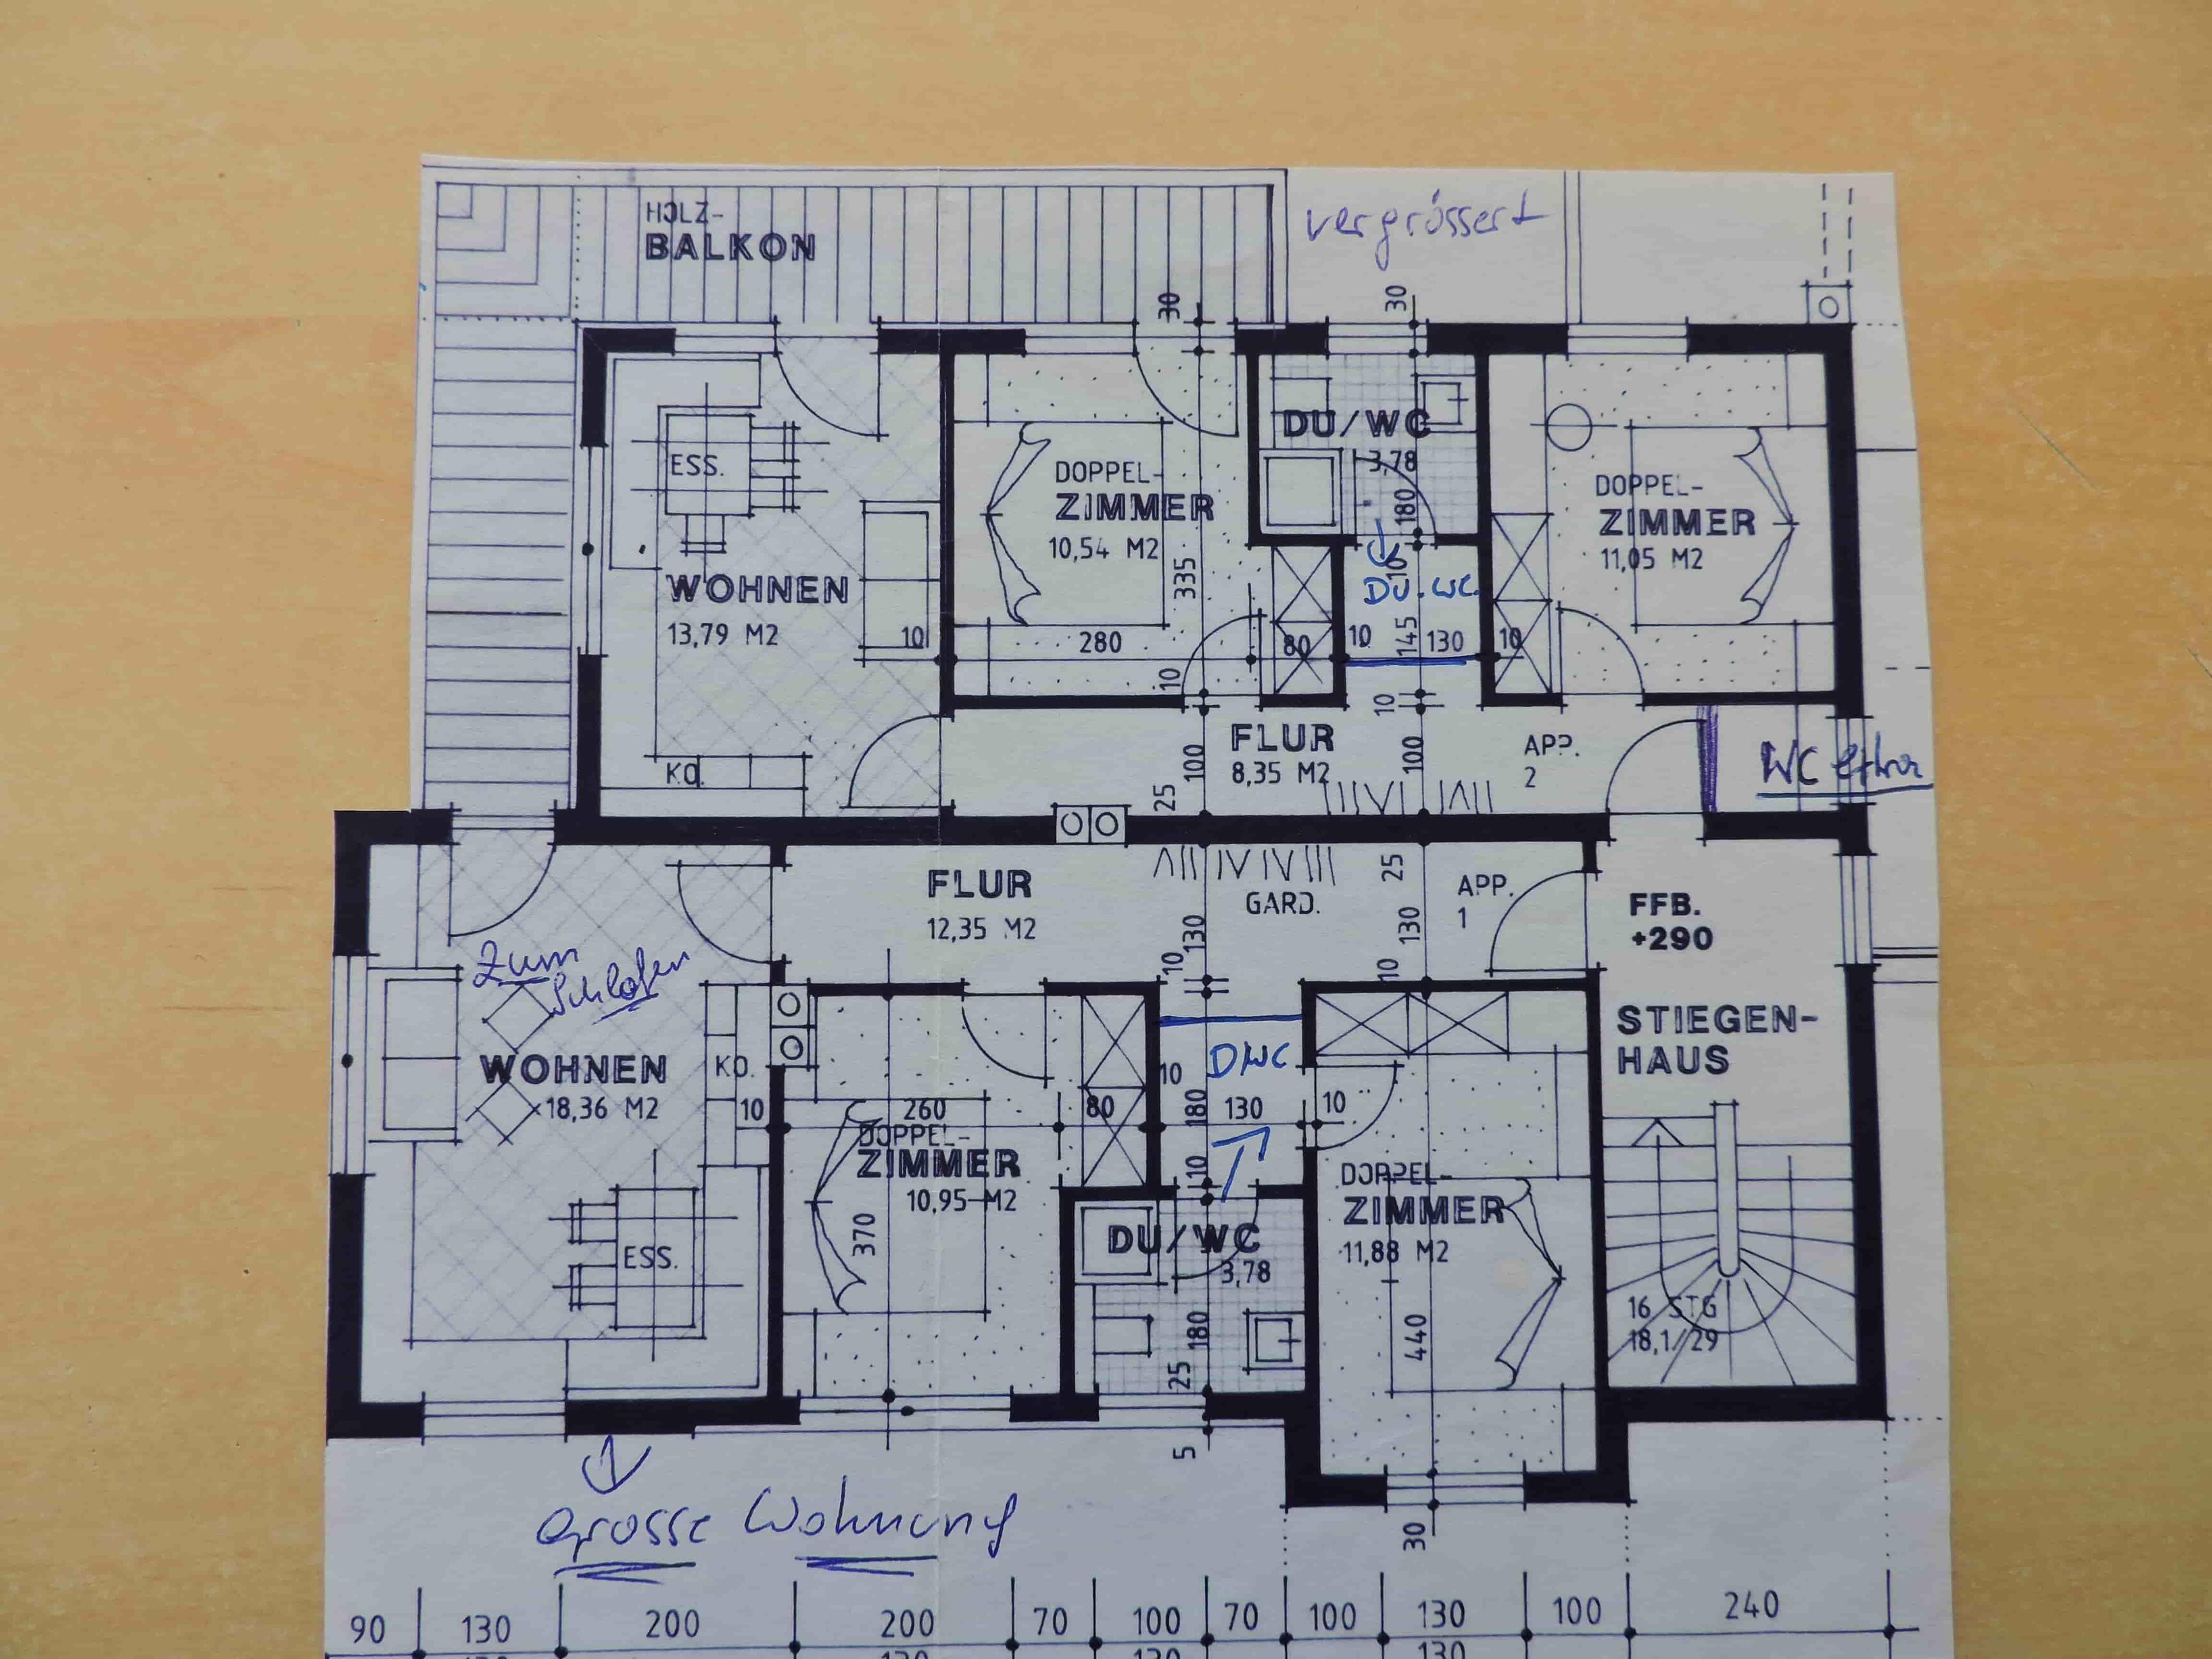 HOLZ-
BALKON
vergrössert
30
30
ESS.
WOHNEN
13,79 M2
10
KO.
DOPPEL-
ZIMMER
10,54 M2
335
280
10
80
DU/WC
3,78
180
10
DU.WC.
10
145
130
10
DOPPEL-
ZIMMER
11,05 M2
FLUR
8,35 M2
10
100
100
25
APP.
2
WC extra
FLUR
12,35 M2
GARD.
25
130
130
10
10
APP.
1
FFB.
+290
STIEGEN-
HAUS
16 STG
18,1/29
zum
Schlafen
WOHNEN
18,36 M2
KO.
10
ESS.
260
DOPPEL-
ZIMMER
10,95 M2
370
80
DWC
10
180
130
10
10
DU/WC
3,78
180
25
5
DOPPEL-
ZIMMER
11,88 M2
440
30
Grosse Wohnung
90 130 200 200 70 100 70 100 130 100 240
130 130 130 130